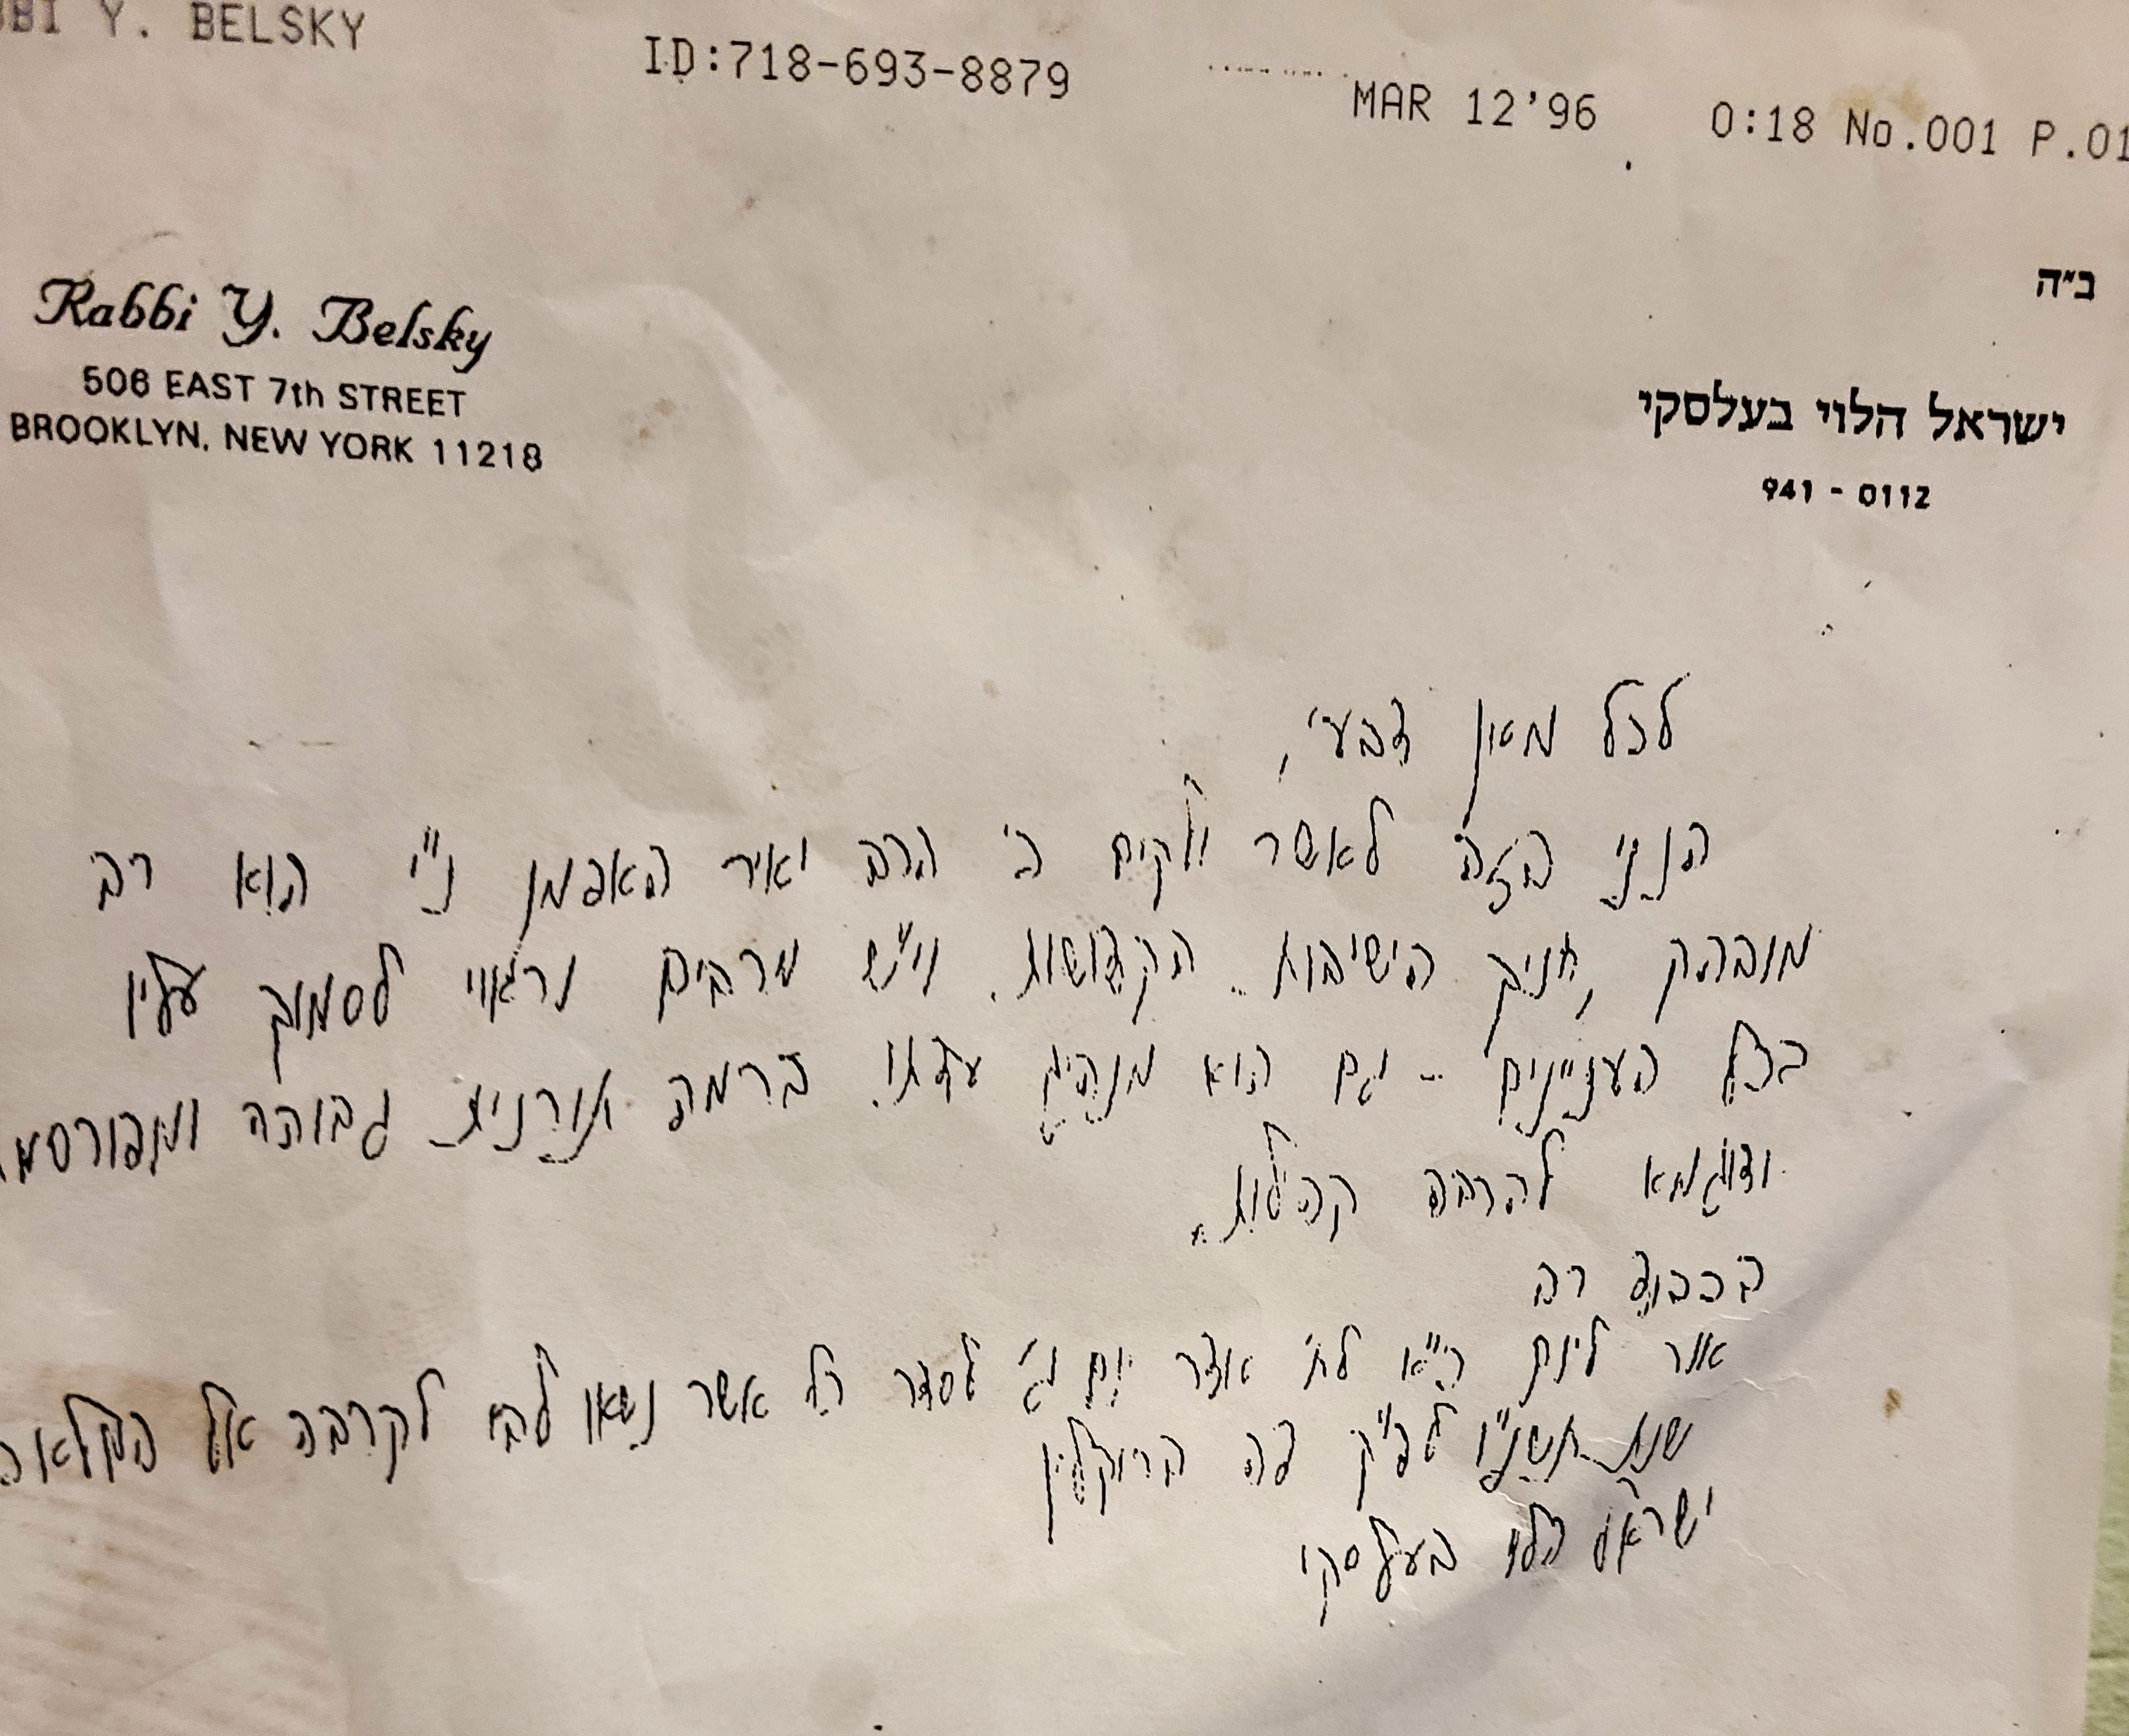 BBI Y. BELSKY ID:718-693-8879 MAR 12'96 0:18 No.001 P.01
ב״ה
Rabbi Y. Belsky
506 EAST 7th STREET
BROOKLYN, NEW YORK 11218
ישראל הלוי בעלסקי
941 - 0112
לכל מאן דבעי,
הנני בזה לאשר ולקים כי הרב יאיר האפמן נ״י הוא רב
מובהק, חניך הישיבות הקדושות. וי״ש מרבים וראוי לסמוך עליו
בכל הענינים - וגם הוא מנהיג עדתו ברמה תורנית גבוהה
ודוגמא להרבה קהילות.
בכבוד רב
אור ליום כ״א לח׳ אדר יום ג׳ לסדר כל אשר נשאו לבו לקרבה אל המלאכה
שנת תשנ״ו לפ״ק פה ברוקלין
ישראל הלוי בעלסקי